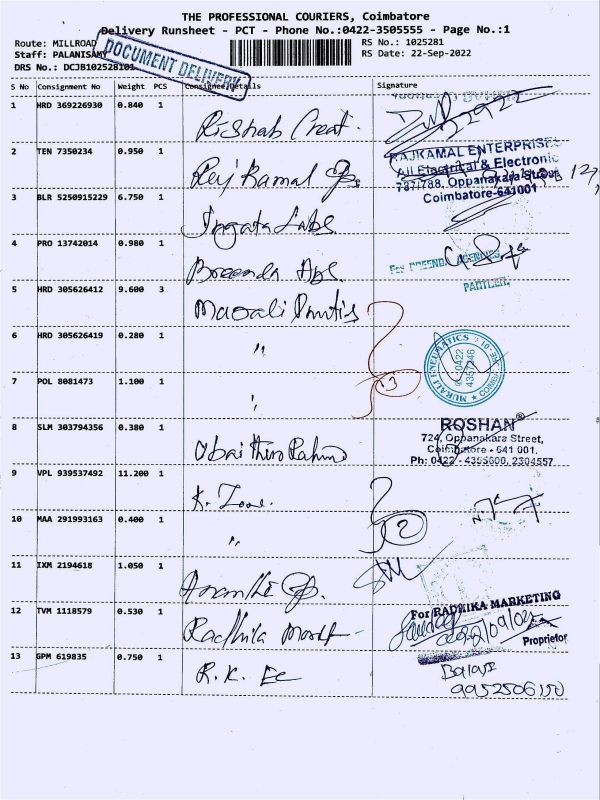 THE PROFESSIONAL COURIERS, Coimbatore
Delivery Runsheet - PCT - Phone No.:0422-3505555 - Page No.:1
Route: MILLROAD
RS No.: 1025281
Staff: PALANISAMY
RS Date: 22-Sep-2022
DRS No.: DCJB102528101
DOCUMENT DELIVERY
S No Consignment No Weight PCS Consignee Details Signature
1 HRD 369226930 0.840 1 Rishab Creat.
2 TEN 7350234 0.950 1 Raj Kamal
RAJKAMAL ENTERPRISES
All Electrical & Electronic
787/788, Oppanakara Street
Coimbatore-641001
3 BLR 5250915229 6.750 1 Labs
4 PRO 13742014 0.980 1
PARTNER.
5 HRD 305626412 9.600 3
6 HRD 305626419 0.280 1 "
3
MURALI PNEUMATICS
0422
4357446
7 POL 8081473 1.100 1 "
8 SLM 303794356 0.380 1
ROSHAN®
724, Oppanakara Street,
Coimbatore - 641 001.
Ph: 0422 - 4355600, 2304557
9 VPL 939537492 11.200 1 K.
10 MAA 291993163 0.400 1 "
2
11 IXM 2194618 1.050 1
12 TVM 1118579 0.530 1
For RADHIKA MARKETING
Proprietor
13 GPM 619835 0.750 1 R.K. Ec
Balaji
9952506150